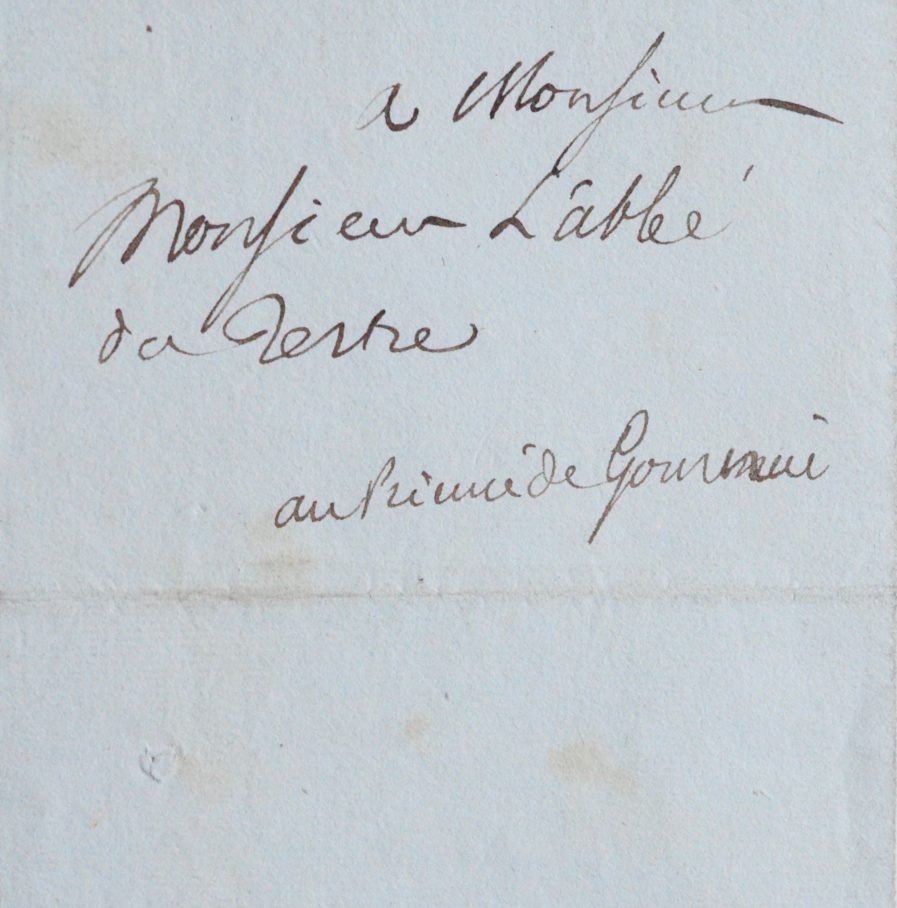 a Monsieur
Monsieur L'abbé
du Tertre
au Prieuré de